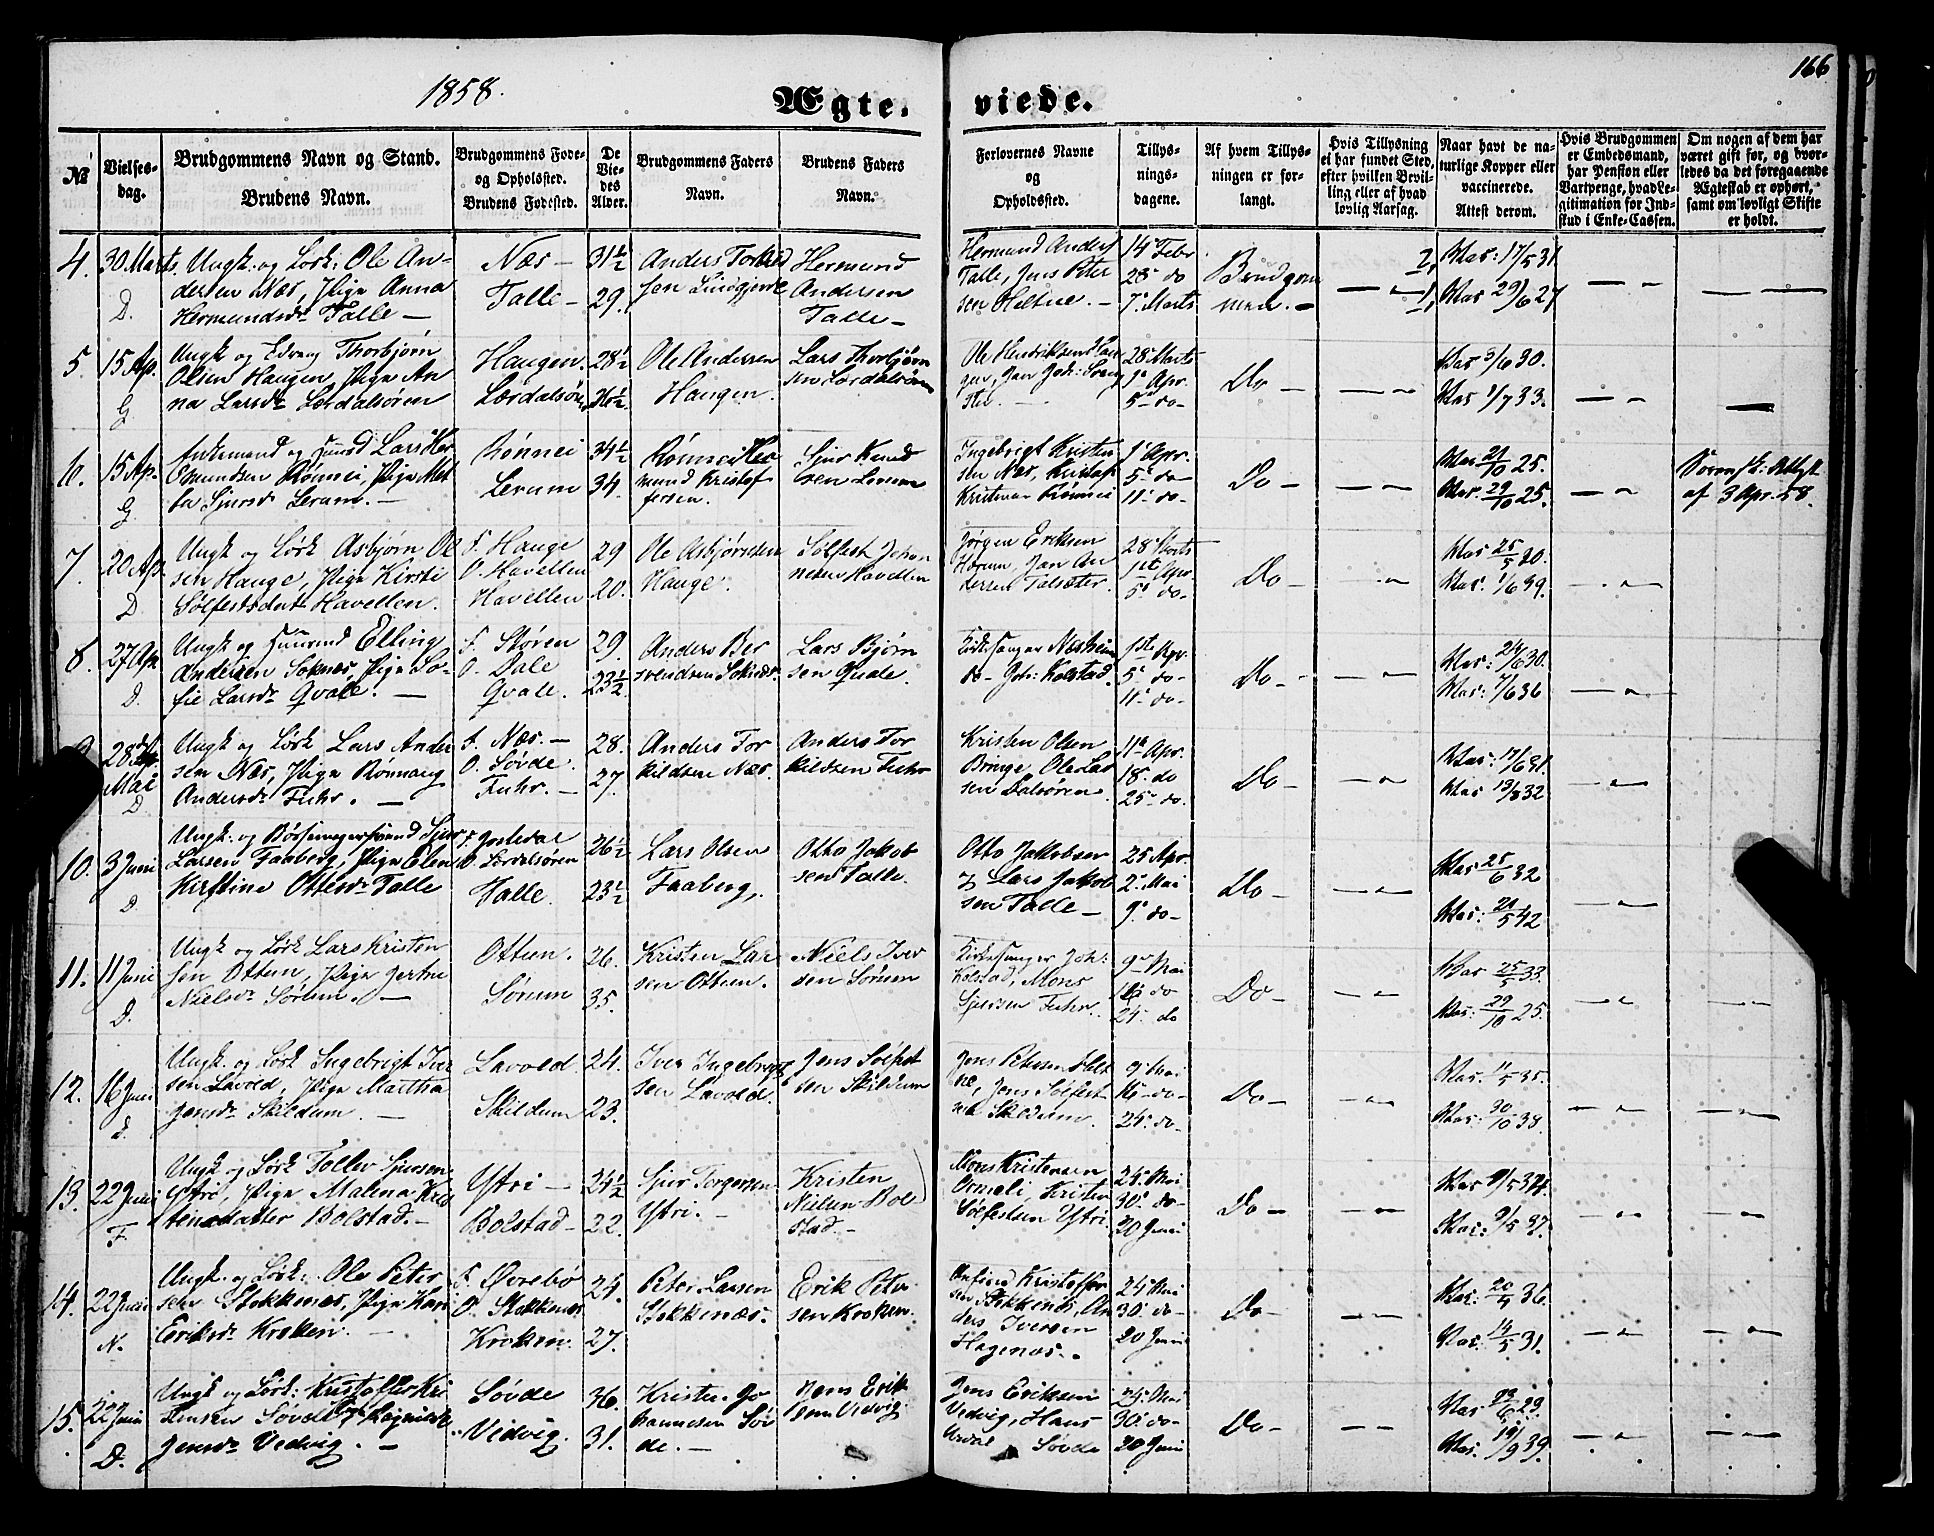 1858.
166
Ægte- viede.
№
Vielses-
dag.
Brudgommens Navn og Stand.
Brudens Navn.
Brudgommens Føde-
og Opholdsted.
Brudens Fødested.
De
Vie-
des
Alder.
Brudgommens Faders
Navn.
Brudens Faders
Navn.
Forlovernes Navne
og
Opholdsted.
Tillys-
nings-
dagene.
Af hvem Tillys-
ningen er for-
langt.
Hvis Tillysning
ei har fundet Sted,
efter hvilken Bevil-
ling eller af hvad
lovlig Aarsag.
Naar havt de na-
turlige Kopper eller
vaccinerede.
Attest derom.
Hvis Brudgommen
er Embedsmand,
har Pension eller
Vartpenge, hvad Le-
gitimation for Ind-
skud i Enke-Cassen.
Om nogen af dem har
været gift før, og hvor-
ledes da det foregaaende
Ægteskab er ophørt,
samt om lovligt Skifte
er holdt.
4. 30 Marts D.
Ungk. og Lørk: Ole An-
dersen Næs, Pige Anna
Hermundsdr Talle —
Næs —
Talle —
31½
29.
Anders Torkild
sen
Hermund
Andersen
Talle —
Hermund Anders
Talle, Jens Peter
sen Heltne. —
14de Febr
28de do
7de Marts
Brudgom
men. —
Vac: 17/5 31
Vac 29/6 27
5. 15 Ap. G.
Ungk og Thorbjørn
Olsen Haugen, Pige An
na Larsdr Lærdalsøren
Haugen.
Lærdalsøren
28½
26½.
Ole Andersen
Haugen.
Lars Thorbjørn
sen Lærdalsøren
Ole Hendriksen Hau
gen, Jan Joh:
28de Marts
1ste Apr.
5te do —
Do —
Vac 3/6 30.
Vac 1/7 33.
6. 15 Ap. G.
Enkemand og Huusmd Lars Her
mundsen Rønnei, Pige Met
ta Sjursdr Lerum. —
Rønnei
Lerum
34½
34.
Rønnei Her
mund Kristof
fersen.
Sjur Knud
sen Lerum
Ingebrigt Kristen
sen Næs, Kristof
Kristensen Rønnei
1ste Apr.
5te do —
11te do —
Do —
Vac. 21/10 25.
Vac. 29/10 25.
Sorenskr: Attest
af 3 Apr. 58.
7. 20 Ap. D
Ungk og Lørk Asbjørn Ol
sen Hauge, Pige Kirsti
Sølfestsdatr Havellen.
F. Hauge
O. Havellen
Havellen
29
20.
Ole Asbjørnsen
Hauge.
Sølfest Johan
nesen Havellen
Jørgen Eriksen
Jan An
dersen Talsæter.
28 Marts
1ste Apr.
5te do —
Do —
Vac 25/5 30.
Vac. 1/6 39.
8. 27 Ap. D.
Ungk og Huusmd Elling
Andersen Soknæs, Pige So-
fie Larsdr Qvale. —
F. Støren
O. Dale
Qvale.
29.
23½
Anders Ber
svendsen Soknæs.
Lars Bjørn
sen Qvale.
Kirkesanger Næsheim
do — Joh: Kolstad.
1ste Apr.
5te do —
11te do —
Do —
Vac: 24/6 30.
Vac: 7/6 36
28de Mai D
Ungk og Lørk Lars Ander
sen Næs, Pige Rønnaug
Andersdr Fuhr. —
F. Næs. —
O. Søvde
Fuhr. —
28.
27.
Anders Tor
kildsen Næs.
Anders Tor
kildsen Fuhr
Kristen Olsen
Bringe, Ole Lar
sen Dalsøren.
11te Apr.
18de do
25de do.
Do —
Vac: 17/6 31.
Vac 13/8 32.
10. 3 Juni D.
Ungk. og Børsemagersvend Sjur
Larsen Faaberg, Pige Elen
Kirstine Ottosdr Talle
F. Jostedal
O. Lærdalsøren
Talle.
26½
23½
Lars Olsen
Faaberg,
Otto Jakob
sen Talle.
Otto Jakobsen
og Lars Jakob
sen Talle —
25 Apr.
2den Mai
9de do —
Do —
Vac: 25/6 32
Vac: 21/5 42
11. 11 Juni D.
Ungk og Lørk Lars Kristen
sen Ottum, Pige Jertru
Nielsdr Sørum. —
Ottum.
Sørum
26.
35.
Kristen Lar
sen Ottum.
Niels Iver
sen Sørum
Kirkesanger Joh:
Kolstad, Mons
Sjursen Fuhr.
9de Mai
16de do
24de do
Do —
Vac 25/5 33.
Vac: 29/10 25.
12. 16 Juni D.
Ungk og Lørk Ingebrigt Iver
sen Lavold, Pige Martha
Jensdr Skildum. —
Lavold.
Skildum
24.
23.
Iver Ingebrigt
sen Lavold.
Jens Sølfest
sen Skildum
Jens Petersen Helt
ne, Jens Sølfest
sen Skildum.
9de Mai
16 — do —
24de do —
Do —
Vac. 11/5 35.
Vac: 30/10 38.
13. 22 Juni F.
Ungk og Lørk Tollev Sjursen
Ytri, Pige Malena Kris
tensdatter Bolstad. —
Ytri —
Bolstad —
24½
22.
Sjur Torgersen
Ytri. —
Kristen
Nielsen Bol
stad. —
Mons Kristensen
Ormeli, Kristen
Sølfestsen Ytri
24de Mai
30te do —
20 Juni
Do —
Vac 9/5 34.
Vac: 9/5 37.
14. 22 Juni N.
Ungk. og Lørk: Ole Peter
sen Stokkenæs, Pige Kari
Eriksdr Kroken. —
F. Øvrebø
O. Stokkenæs
Kroken.
24.
27.
Peter Larsen
Stokkenæs.
Erik Peter
sen Kroken.
Anfind Kristoffer
sen Stokkenæs, An
ders Iversen
Hagenæs. —
24de Mai
30te do —
20 Juni
Do —
Vac: 20/4 36.
Vac: 14/5 31.
15. 22 Juni D.
Ungk og Lørk: Kristoffer Kri
stensen Søvde, og Ragnilde
Jensdr Vedvig. —
Søvde
Vidvig.
36.
31.
Kristen Jo
hannesen Søv
de. —
Jens Erik
sen Vedvig
Jens Eriksen
Vedvig, Hans
Søvde
24de Mai
30te do —
20 Juni
Do —
Vac 23/6 23.
Vac. 19/9 39.